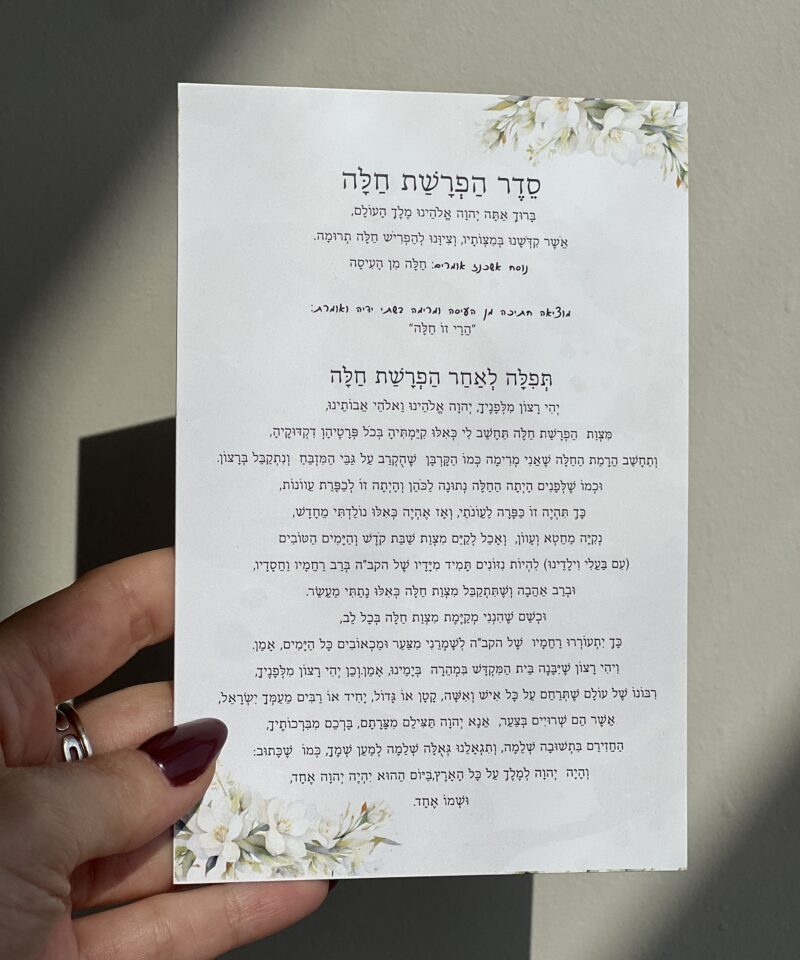 סֵדֶר הַפְרָשַׁת חַלָּה
בָּרוּךְ אַתָּה יְהוָה אֱלֹהֵינוּ מֶלֶךְ הָעוֹלָם,
אֲשֶׁר קִדְּשָׁנוּ בְּמִצְוֹתָיו, וְצִיוָּנוּ לְהַפְרִישׁ חַלָּה תְרוּמָה.
נוסח אשכנז אומרים: חַלָּה מִן הָעִיסָה
מוציאה חתיכה מן העיסה ומרימה בשתי ידיה ואומרת:
"הֲרֵי זוֹ חַלָּה"
תְּפִלָּה לְאַחַר הַפְרָשַׁת חַלָּה
יְהִי רָצוֹן מִלְּפָנֶיךָ, יְהוָה אֱלֹהֵינוּ וֵאלֹהֵי אֲבוֹתֵינוּ,
מִצְוַת הַפְרָשַׁת חַלָּה תֵּחָשֵׁב לִי כְּאִלּוּ קִיַּמְתִּיהָ בְּכֹל פְּרָטֶיהָן דִּקְדּוּקֶיהָ,
וְתֵחָשֵׁב הֲרָמַת הַחַלָּה שֶׁאֲנִי מְרִימָה כְּמוֹ הַקָּרְבָּן שֶׁהֻקְרַב עַל גַּבֵּי הַמִּזְבֵּחַ וְנִתְקַבֵּל בְּרָצוֹן.
וּכְמוֹ שֶׁלְּפָנִים הָיְתָה הַחַלָּה נְתוּנָה לַכֹּהֵן וְהָיְתָה זוֹ לְכַפָּרַת עֲוֹונוֹת,
כָּךְ תִּהְיֶה זוֹ כַּפָּרָה לַעֲוֹנֹתַי, וְאָז אֶהְיֶה כְּאִלּוּ נוֹלַדְתִּי מֵחָדָשׁ,
נְקִיָּה מֵחֵטְא וְעָווֹן, וְאָכֵל לְקַיֵּם מִצְוַת שַׁבַּת קֹדֶשׁ וְהַיָּמִים הַטּוֹבִים
(עִם בַּעֲלִי וִילָדֵינוּ) לִהְיוֹת נִזּוֹנִים תָּמִיד מִיָּדָיו שֶׁל הקב"ה בְּרֹב רַחֲמָיו וַחֲסָדָיו,
וּבְרֹב אַהֲבָה וְשֶׁתִּתְקַבֵּל מִצְוַת חַלָּה כְּאִלּוּ נָתַתִּי מַעֲשֵׂר.
וּכְשֵׁם שֶׁהִנְנִי מְקַיֶּמֶת מִצְוַת חַלָּה בְּכָל לֵב,
כָּךְ יִתְעוֹרְרוּ רַחֲמָיו שֶׁל הקב"ה לְשָׁמְרֵנִי מִצַּעַר וּמַכְאוֹבִים כָּל הַיָּמִים, אָמֵן.
וִיהִי רָצוֹן שֶׁיִּבָּנֶה בֵּית הַמִּקְדָּשׁ בִּמְהֵרָה בְּיָמֵינוּ, אָמֵן.וְכֵן יְהִי רָצוֹן מִלְּפָנֶיךָ,
רִבּוֹנוֹ שֶׁל עוֹלָם שֶׁתְּרַחֵם עַל כָּל אִישׁ וְאִשָּׁה, קָטָן אוֹ גָּדוֹל, יָחִיד אוֹ רַבִּים מֵעַמְּךָ יִשְׂרָאֵל,
אֲשֶׁר הֵם שְׁרוּיִים בְּצַעַר, אָנָּא יְהוָה תַּצִּילֵם מִצָּרָתָם, בָּרְכֵם מִבִּרְכוֹתֶיךָ,
הַחֲזִירֵם בִּתְשׁוּבָה שְׁלֵמָה, וְתִגְאָלֵנוּ גְּאֻלָּה שְׁלֵמָה לְמַעַן שְׁמֶךָ, כְּמוֹ שֶׁכָּתוּב:
וְהָיָה יְהוָה לְמֶלֶךְ עַל כָּל הָאָרֶץ,בַּיּוֹם הַהוּא יִהְיֶה יְהוָה אֶחָד,
וּשְׁמוֹ אֶחָד.